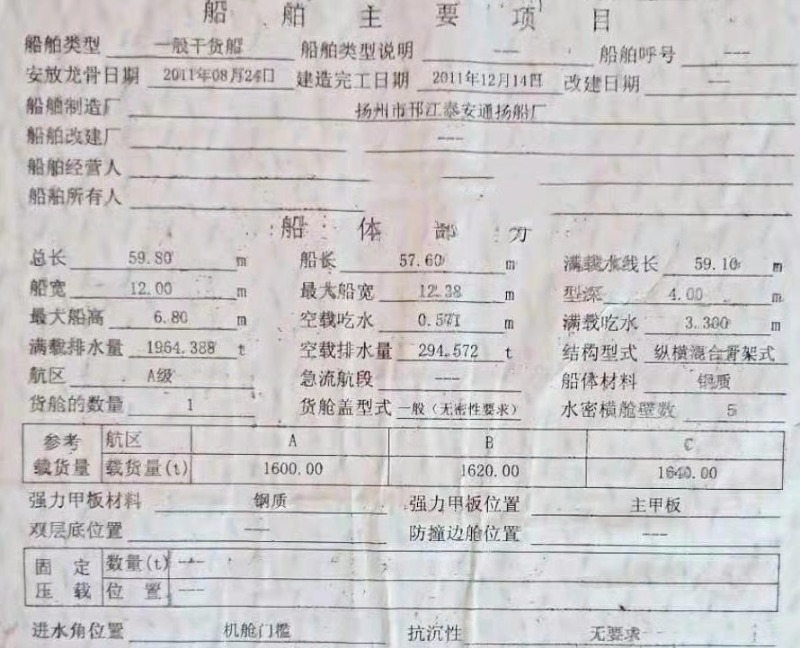 船舶主要项目
船舶类型 一般干货船 船舶类型说明 --- 船舶呼号 ---
安放龙骨日期 2011年08月24日 建造完工日期 2011年12月14日 改建日期 ---
船舶制造厂 扬州市邗江泰安通扬船厂
船舶改建厂 ---
船舶经营人
船舶所有人
船体部分
总长 59.80 m 船长 57.60 m 满载水线长 59.10 m
船宽 12.00 m 最大船宽 12.38 m 型深 4.00 m
最大船高 6.80 m 空载吃水 0.571 m 满载吃水 3.300 m
满载排水量 1964.388 t 空载排水量 294.572 t 结构型式 纵横混合骨架式
航区 A级 急流航段 --- 船体材料 钢质
货舱的数量 1 货舱盖型式 一般（无密性要求） 水密横舱壁数 5
参考 航区 A B C
载货量 载货量(t) 1600.00 1620.00 1640.00
强力甲板材料 钢质 强力甲板位置 主甲板
双层底位置 --- 防撞边舱位置 ---
固定 数量(t) ---
压载 位置 ---
进水角位置 机舱门槛 抗沉性 无要求